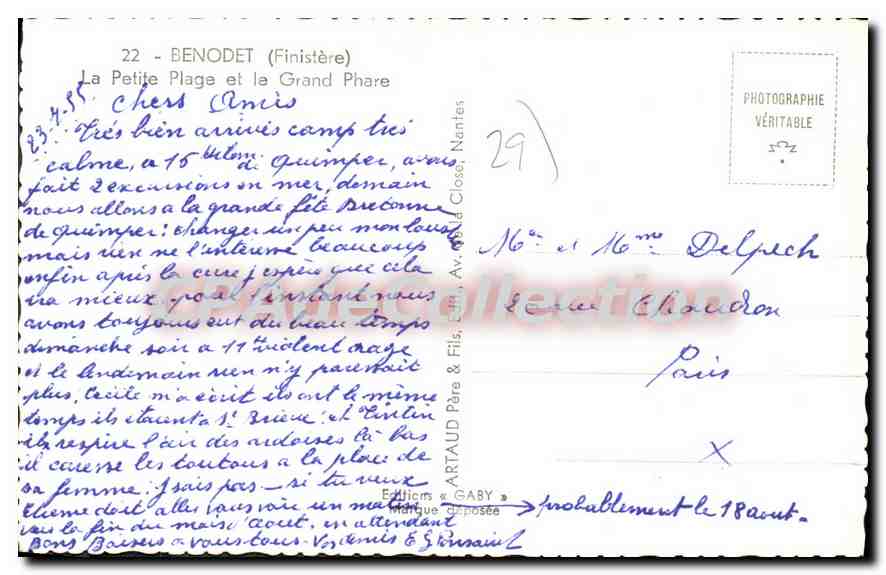 22 - BENODET (Finistère)
La Petite Plage et le Grand Phare
23-7-55
chers Amis
très bien arrivés camp très
calme, a 15 kilom. de Quimper, avons
fait 2 excursions en mer, demain
nous allons a la grande fête Bretonne
de Quimper: changer un peu mon
mais rien ne l'intéresse beaucoup
enfin après la cure j'espère que cela
ira mieux. pour l'instant nous
avons toujours eut du beau temps
dimanche soir a 11h violent orage
et le lendemain rien n'y paraissait
plus, Cécile m'a écrit ils ont le même
temps ils étaient a St Brieuc: et Tintin
ils respire l'air des ardoises là bas
il caresse les toutous a la place de
sa femme: j'sais pas - si tu veux
Etienne doit aller vous voir un matin
vers la fin du mois d'août. en attendant
Bons Baisers a vous tous. Vos amis E G
probablement le 18 aout.
Editions « GABY »
Marque déposée
ARTAUD Père & Fils, Edit., Av. de la Close, Nantes
29)
PHOTOGRAPHIE
VÉRITABLE
Mr et Mme Delpech
2 rue Chaudron
Paris
X
CPACollection